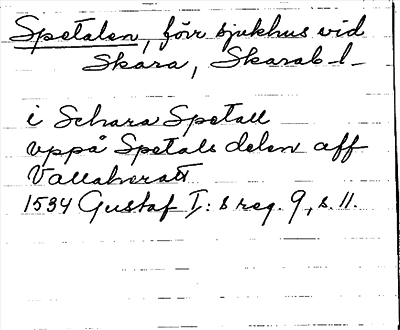 Spetalen, förr sjukhus vid
Skara, Skarab. l.
i Schara Spetall
vppå Spetals delen aff
Vallaheratt
1534 Gustaf I:s reg. 9, s. 11.